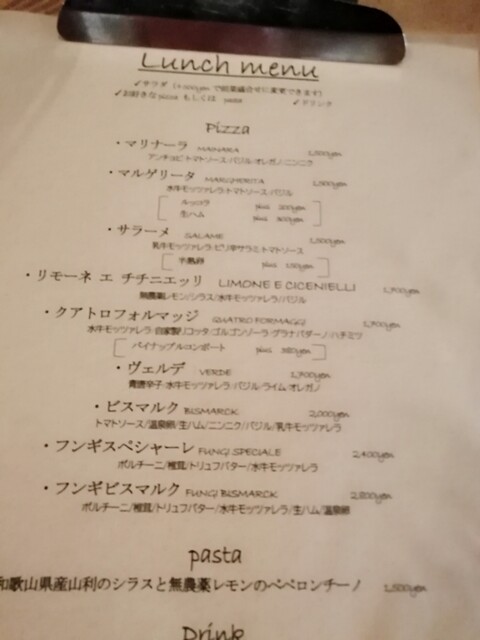 Lunch menu
✓サラダ
✓お好きな pizza もしくは pasta ✓ドリンク
Pizza
・マリナーラ MARINARA 1,500yen
アンチョビ・トマトソース・バジル・オレガノ・ニンニク
・マルゲリータ MARGHERITA 1,500yen
水牛モッツァレラ・トマトソース・バジル
ルッコラ plus 200yen
生ハム plus 300yen
・サラーメ SALAME 1,500yen
乳牛モッツァレラ・ピリ辛サラミ・トマトソース
半熟卵 plus 150yen
・リモーネ エ チチニエッリ LIMONE E CICENIELLI 1,700yen
無農薬レモン/シラス/水牛モッツァレラ/バジル
・クアトロフォルマッジ QUATRO FORMAGGI 1,700yen
水牛モッツァレラ・自家製リコッタ・ゴルゴンゾーラ・グラナパダーノ・ハチミツ
パイナップルコンポート plus
・ヴェルデ VERDE 1,700yen
青唐辛子・水牛モッツァレラ・バジル・ライム・オレガノ
・ビスマルク BISMARCK 2,000yen
トマトソース/温泉卵/生ハム/ニンニク/バジル/乳牛モッツァレラ
・フンギスペシャーレ FUNGI SPECIALE 2,400yen
ポルチーニ/椎茸/トリュフバター/水牛モッツァレラ
・フンギビスマルク FUNGI BISMARCK 2,800yen
ポルチーニ/椎茸/トリュフバター/水牛モッツァレラ/生ハム/温泉卵
pasta
和歌山県産山利のシラスと無農薬レモンのペペロンチーノ 1,500yen
Drink